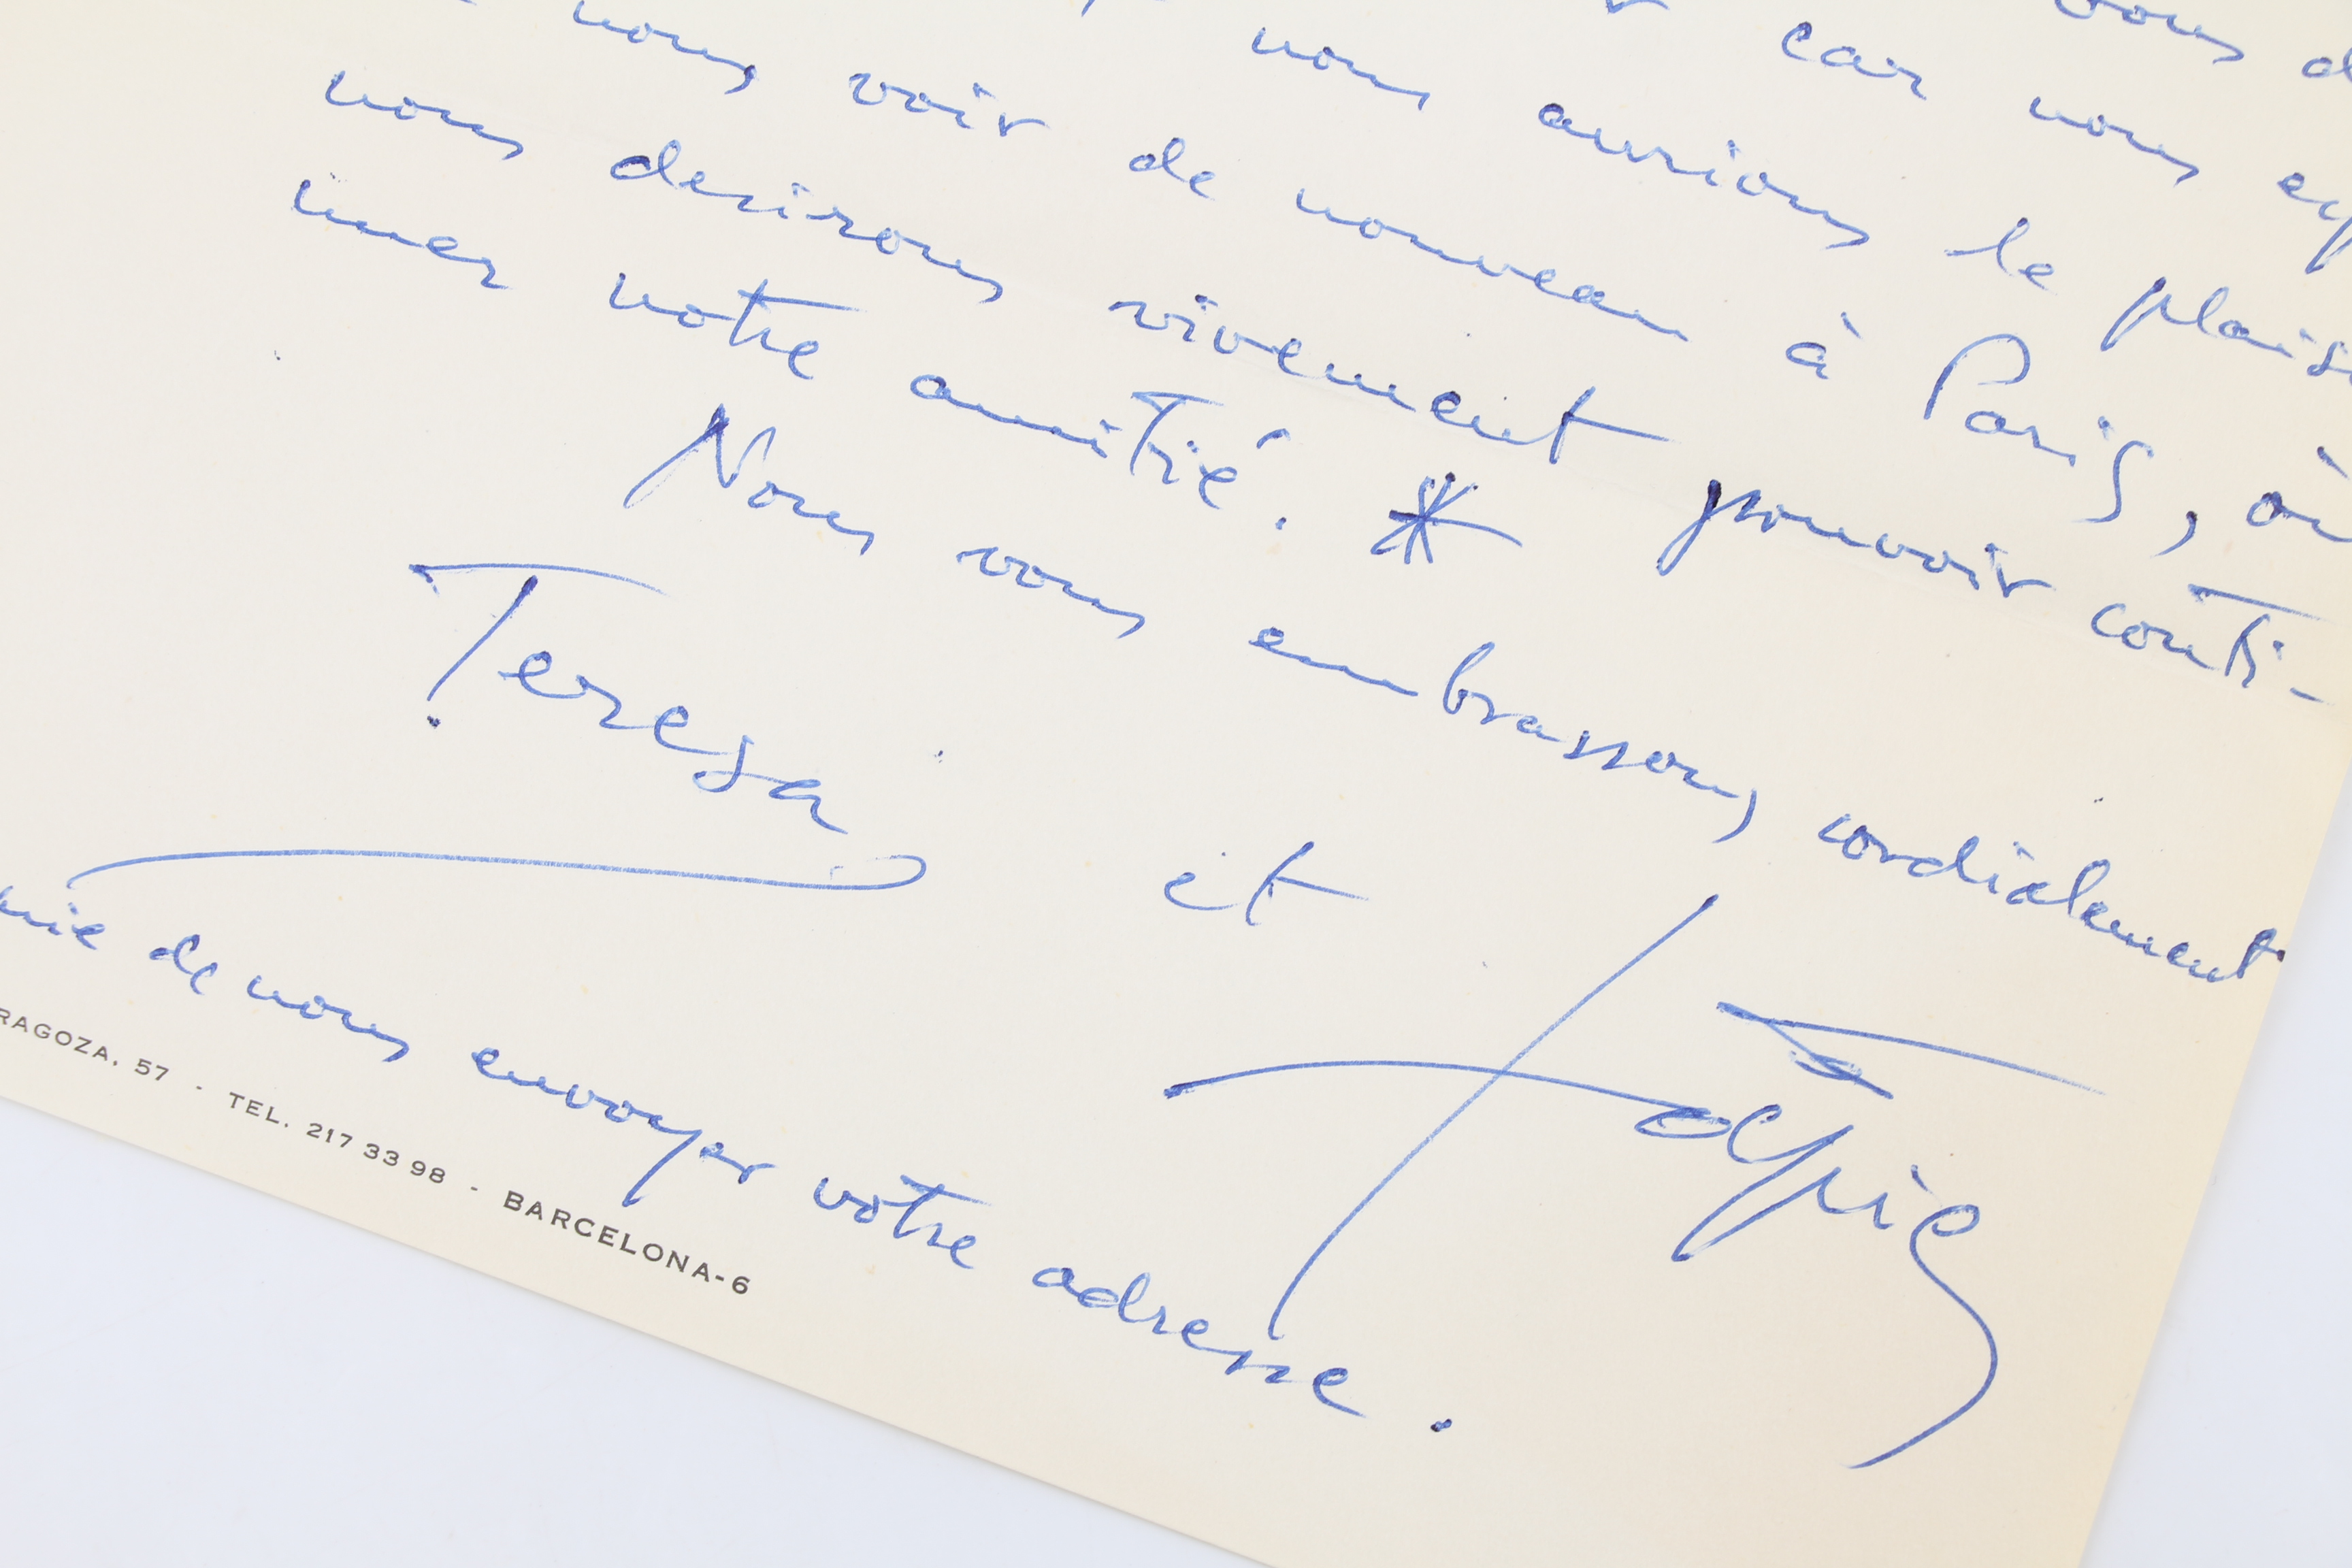 vous
car nous
nous aurions le plais
nous voir de nouveau à Paris, où
nous desirons vivement pouvoir conti-
nuer notre amitié. *
Nous vous embrassons cordialement
Teresa et Tàpies
de nous envoyer votre adresse.
RAGOZA, 57 - TEL. 217 33 98 - BARCELONA-6